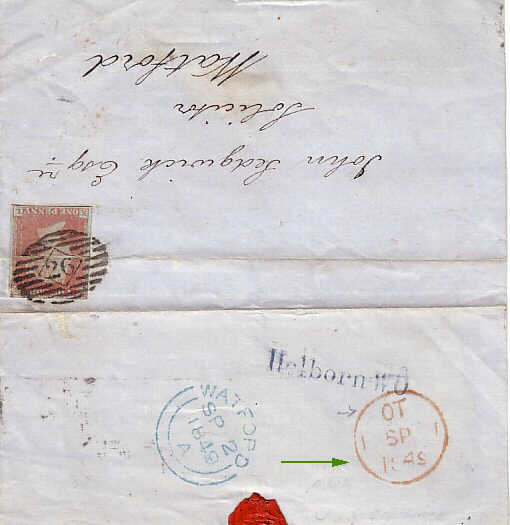 John Sedgwick Esqre
Solicitor
Watford
ONE PENNY
26
Holborn W.O
WATFORD
SP 20
1849
A
OT
1 SP 1
1849